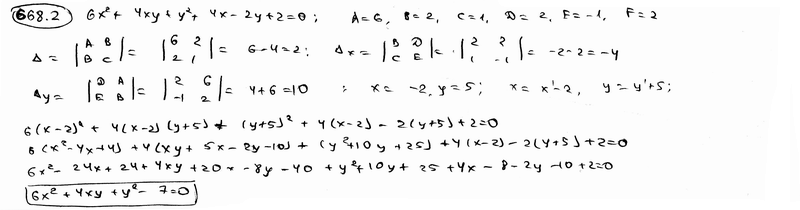 668.2) 6x² + 4xy + y² + 4x - 2y + 2 = 0; A=6, B=2, C=1, D=2, E=-1, F=2
Δ = |A B; B C| = |6 2; 2 1| = 6-4=2; Δx = |B D; C E| = |2 2; 1 -1| = -2-2=-4
Δy = |D A; E B| = |2 6; -1 2| = 4+6=10; x = -2, y=5; x = x'-2, y = y'+5;
6(x-2)² + 4(x-2)(y+5) + (y+5)² + 4(x-2) - 2(y+5)+2=0
6(x²-4x+4) + 4(xy + 5x - 2y-10) + (y²+10y+25) + 4(x-2) - 2(y+5)+2=0
6x² - 24x + 24 + 4xy + 20x - 8y - 40 + y²+10y + 25 + 4x - 8 - 2y - 10 + 2=0
6x² + 4xy + y² - 7=0